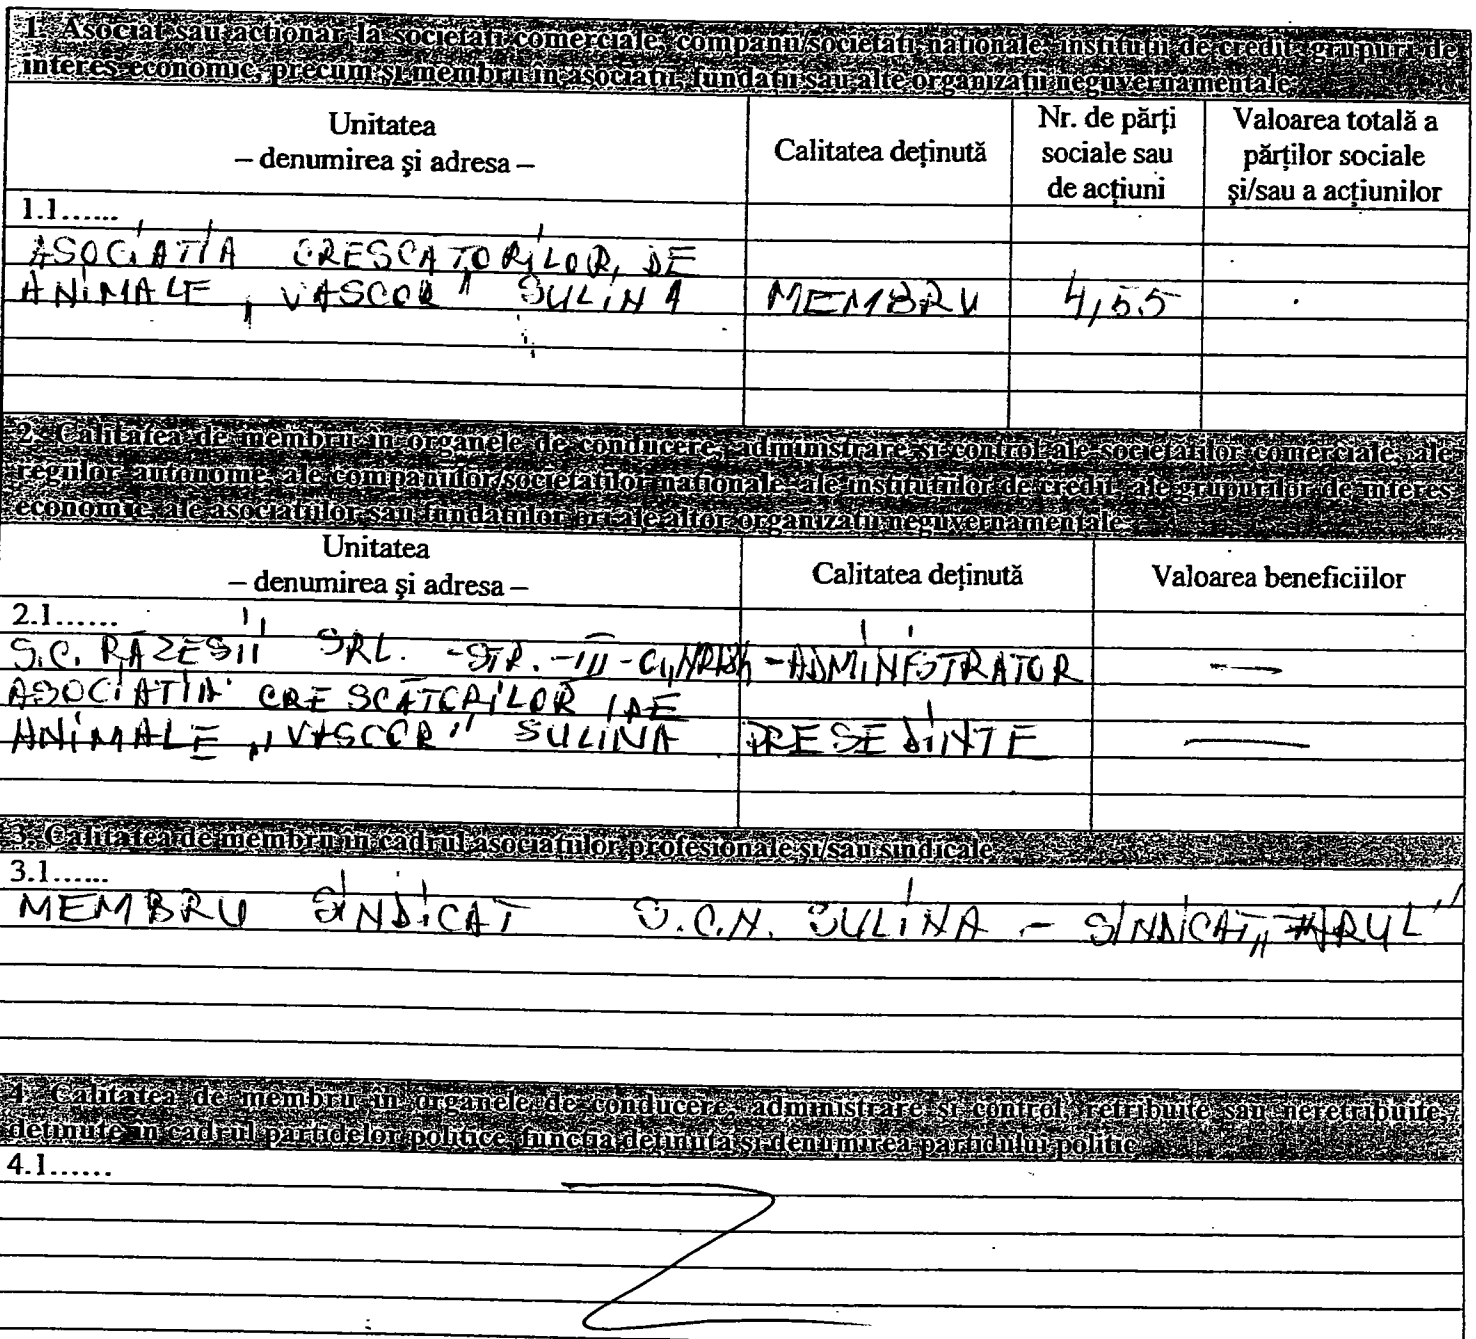 1. Asociat sau acționar la societăți comerciale, companii/societăți naționale, instituții de credit, grupuri de
interes economic, precum și membru în asociații, fundații sau alte organizații neguvernamentale
Unitatea
– denumirea și adresa –
Calitatea deținută
Nr. de părți
sociale sau
de acțiuni
Valoarea totală a
părților sociale
și/sau a acțiunilor
1.1......
ASOCIATIA CRESCATORILOR DE
ANIMALE „VASCOR" SULINA MEMBRU 4,55
2. Calitatea de membru în organele de conducere, administrare și control ale societăților comerciale, ale
regiilor autonome, ale companiilor/societăților naționale, ale instituțiilor de credit, ale grupurilor de interes
economic, ale asociațiilor sau fundațiilor ori ale altor organizații neguvernamentale
Unitatea
– denumirea și adresa –
Calitatea deținută
Valoarea beneficiilor
2.1......
S.C. RĂZESII SRL. -STR.-III- -ADMINISTRATOR —
ASOCIATIA CRESCATORILOR DE
ANIMALE „VASCOR" SULINA PRESEDINTE —
3. Calitatea de membru în cadrul asociațiilor profesionale și/sau sindicale
3.1......
MEMBRU SINDICAT S.C.N. SULINA – SINDICAT
4. Calitatea de membru în organele de conducere, administrare și control, retribuite sau neretribuite,
deținute în cadrul partidelor politice, funcția deținută și denumirea partidului politic
4.1......